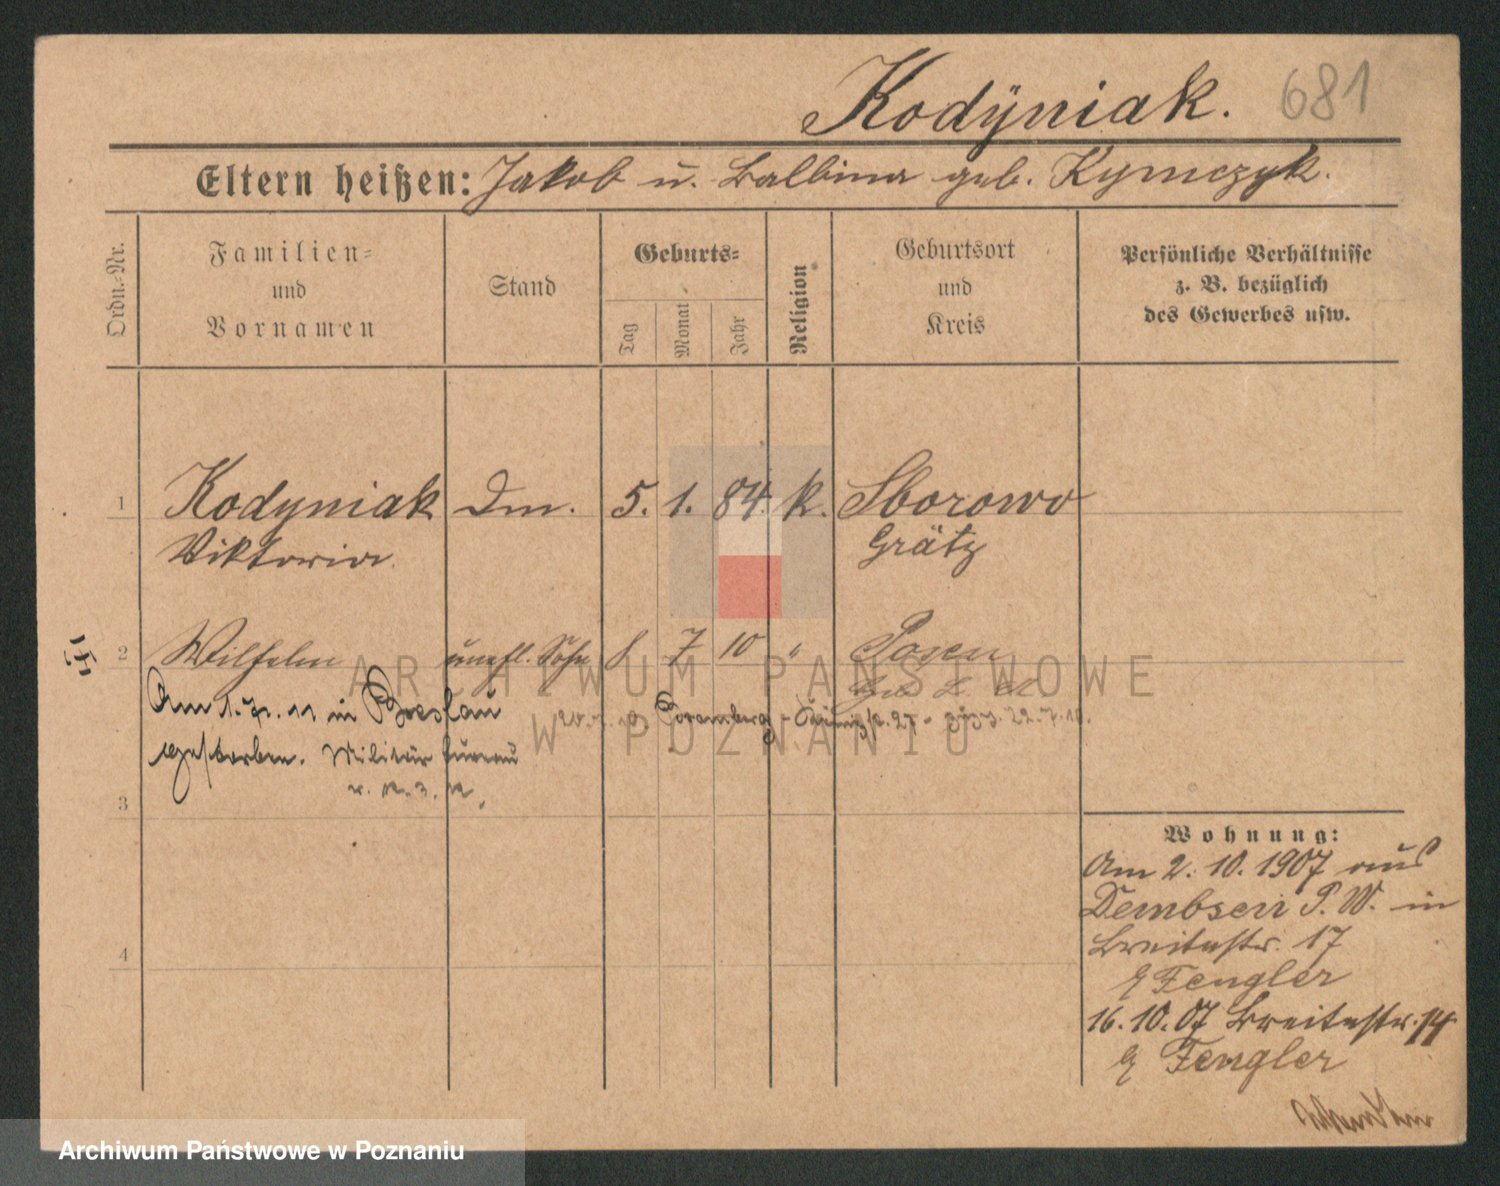 Kodÿniak. 681
Eltern heißen: Jakob u. Balbina geb. Kymczyk.
Ordn.-Nr.
Familien-
und
Vornamen
Stand
Geburts-
Tag
Monat
Jahr
Religion
Geburtsort
und
Kreis
Persönliche Verhältnisse
z. B. bezüglich
des Gewerbes usw.
1 Kodyniak Dm. 5. 1. 84. k. Sborowo
Viktoria. Grätz
2 Wilhelm unehl. Sohn 8 7 10 " Posen
Am 1. 7. 11 in Breslau
gestorben. Militär bureau
3
4
Wohnung:
Am 2. 10. 1907 aus
Dembsen P. W. in
Breitestr. 17
b/ Fengler
16. 10. 07 Breitestr. 14
b/ Fengler
ARCHIWUM PAŃSTWOWE
W POZNANIU
Archiwum Państwowe w Poznaniu